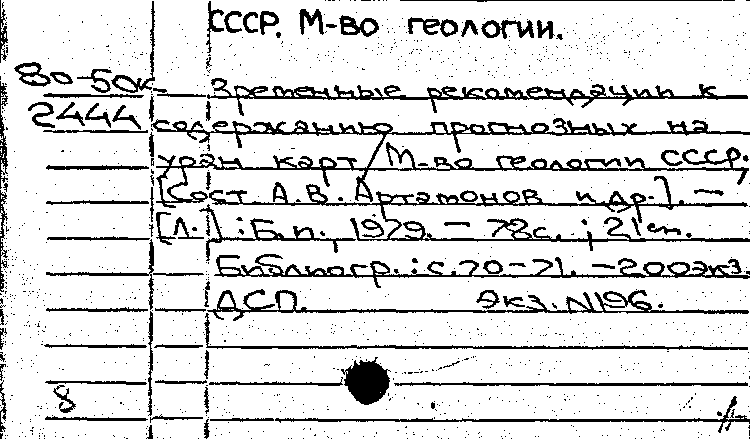 СССР. М-во геологии.
80-50к Временные рекомендации к
2444 содержанию прогнозных на
уран карт / М-во геологии СССР;
[Сост А.В. Артамонов и др.]. —
[Л.] : Б.и., 1979. — 78с. ; 21см.
Библиогр.: с.70-71. — 200экз.
ДСП. Экз. N196.
8